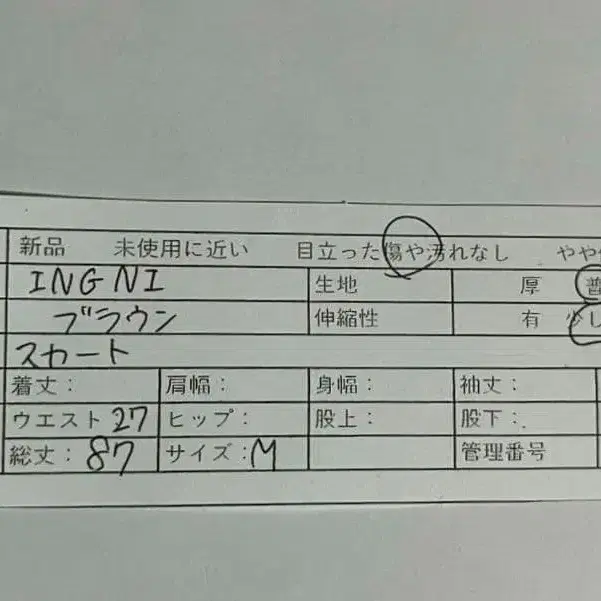 新品 未使用に近い 目立った傷や汚れなし やや
INGNI 生地 厚 普
ブラウン 伸縮性 有 少し
スカート
着丈: 肩幅: 身幅: 袖丈:
ウエスト 27 ヒップ: 股上: 股下:
総丈: 87 サイズ:M 管理番号